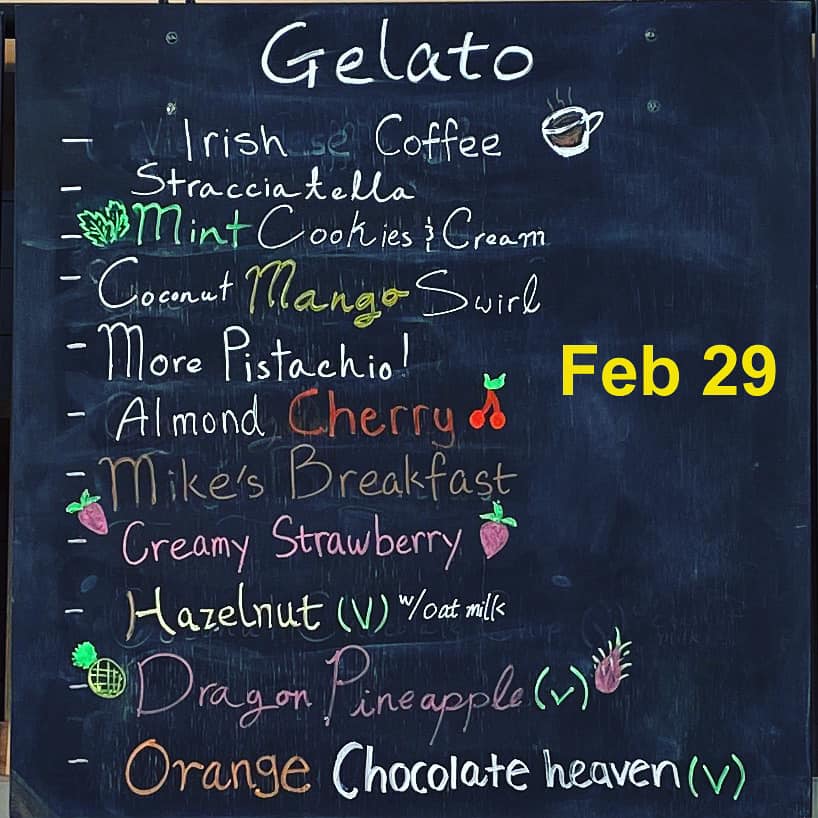 Gelato
- Irish Coffee
- Stracciatella
- Mint Cookies & Cream
- Coconut Mango Swirl
- More Pistachio!
Feb 29
- Almond Cherry
- Mike's Breakfast
- Creamy Strawberry
- Hazelnut (V) w/oat milk
- Dragon Pineapple (v)
- Orange Chocolate heaven (V)